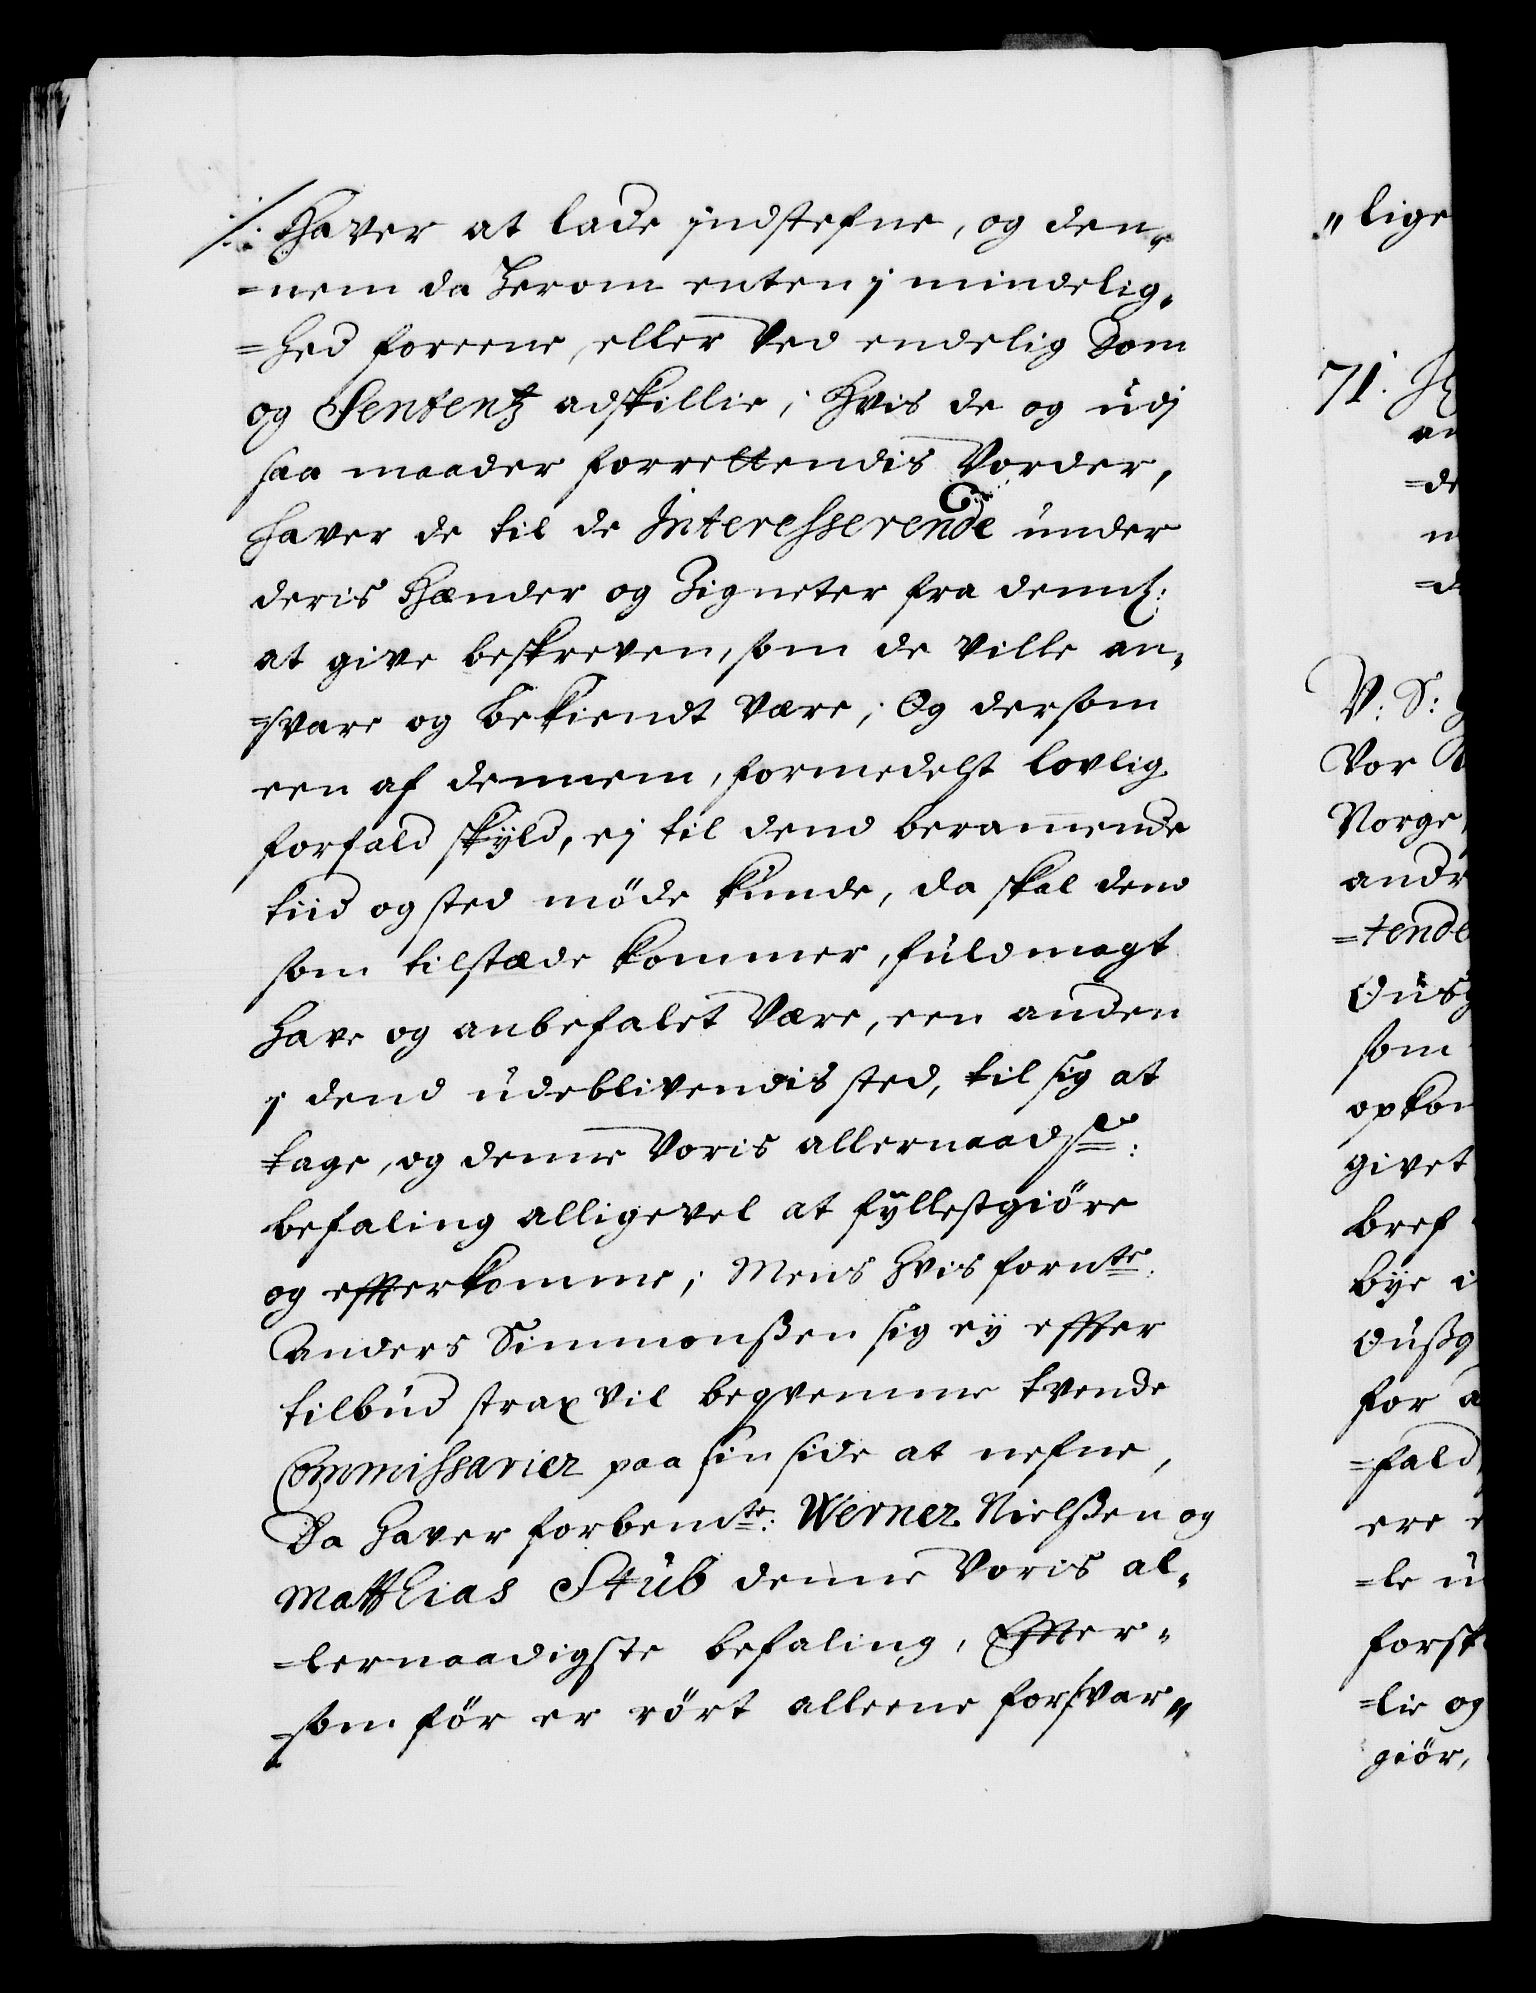 ./. Hafver at lade jndstefne, og den„
=nem da herom enten j mindelig„
=hed foreene, eller ved endelig Dom
og Sententz adskillie; Hvis de og udj
saa maader forrettendis Vorder,
hafver de til de Interesserende under
deris Hænder og Zigneter fra dennem:
at give beskreven, som de ville an„
=svare og bekiendt være; Og dersom
een af dennem, formedelst lovlig
forfald skyld, ej til dend beramende
tiid og sted möde kunde, da skal dend
som tilstæde kommer, fuldmagt
have og anbefalet være, een anden
j dend udeblivendis sted, til sig at
tage, og denne Voris allernaadste:
befaling alligevel at fyllestgiöre
og effterkomme; Mens hvis fornte:
Anders Simmonßen sig ey effter
tilbud strax vil begvemme tvende
Commissarier paa sin side at nefne,
Da hafver forbemte: Werner Nielßen og
Matthias Stub denne Voris al„
=lernaadigste befaling, Effter„
=som för er rört alleene forsvar„
„lige
71.
=de
=d
V: S:
Vor
Norge,
andr
=tende
som
opkom
givet
bref
bye i
for a
=fald
ere
=le u
forsk
=lie og
giör,